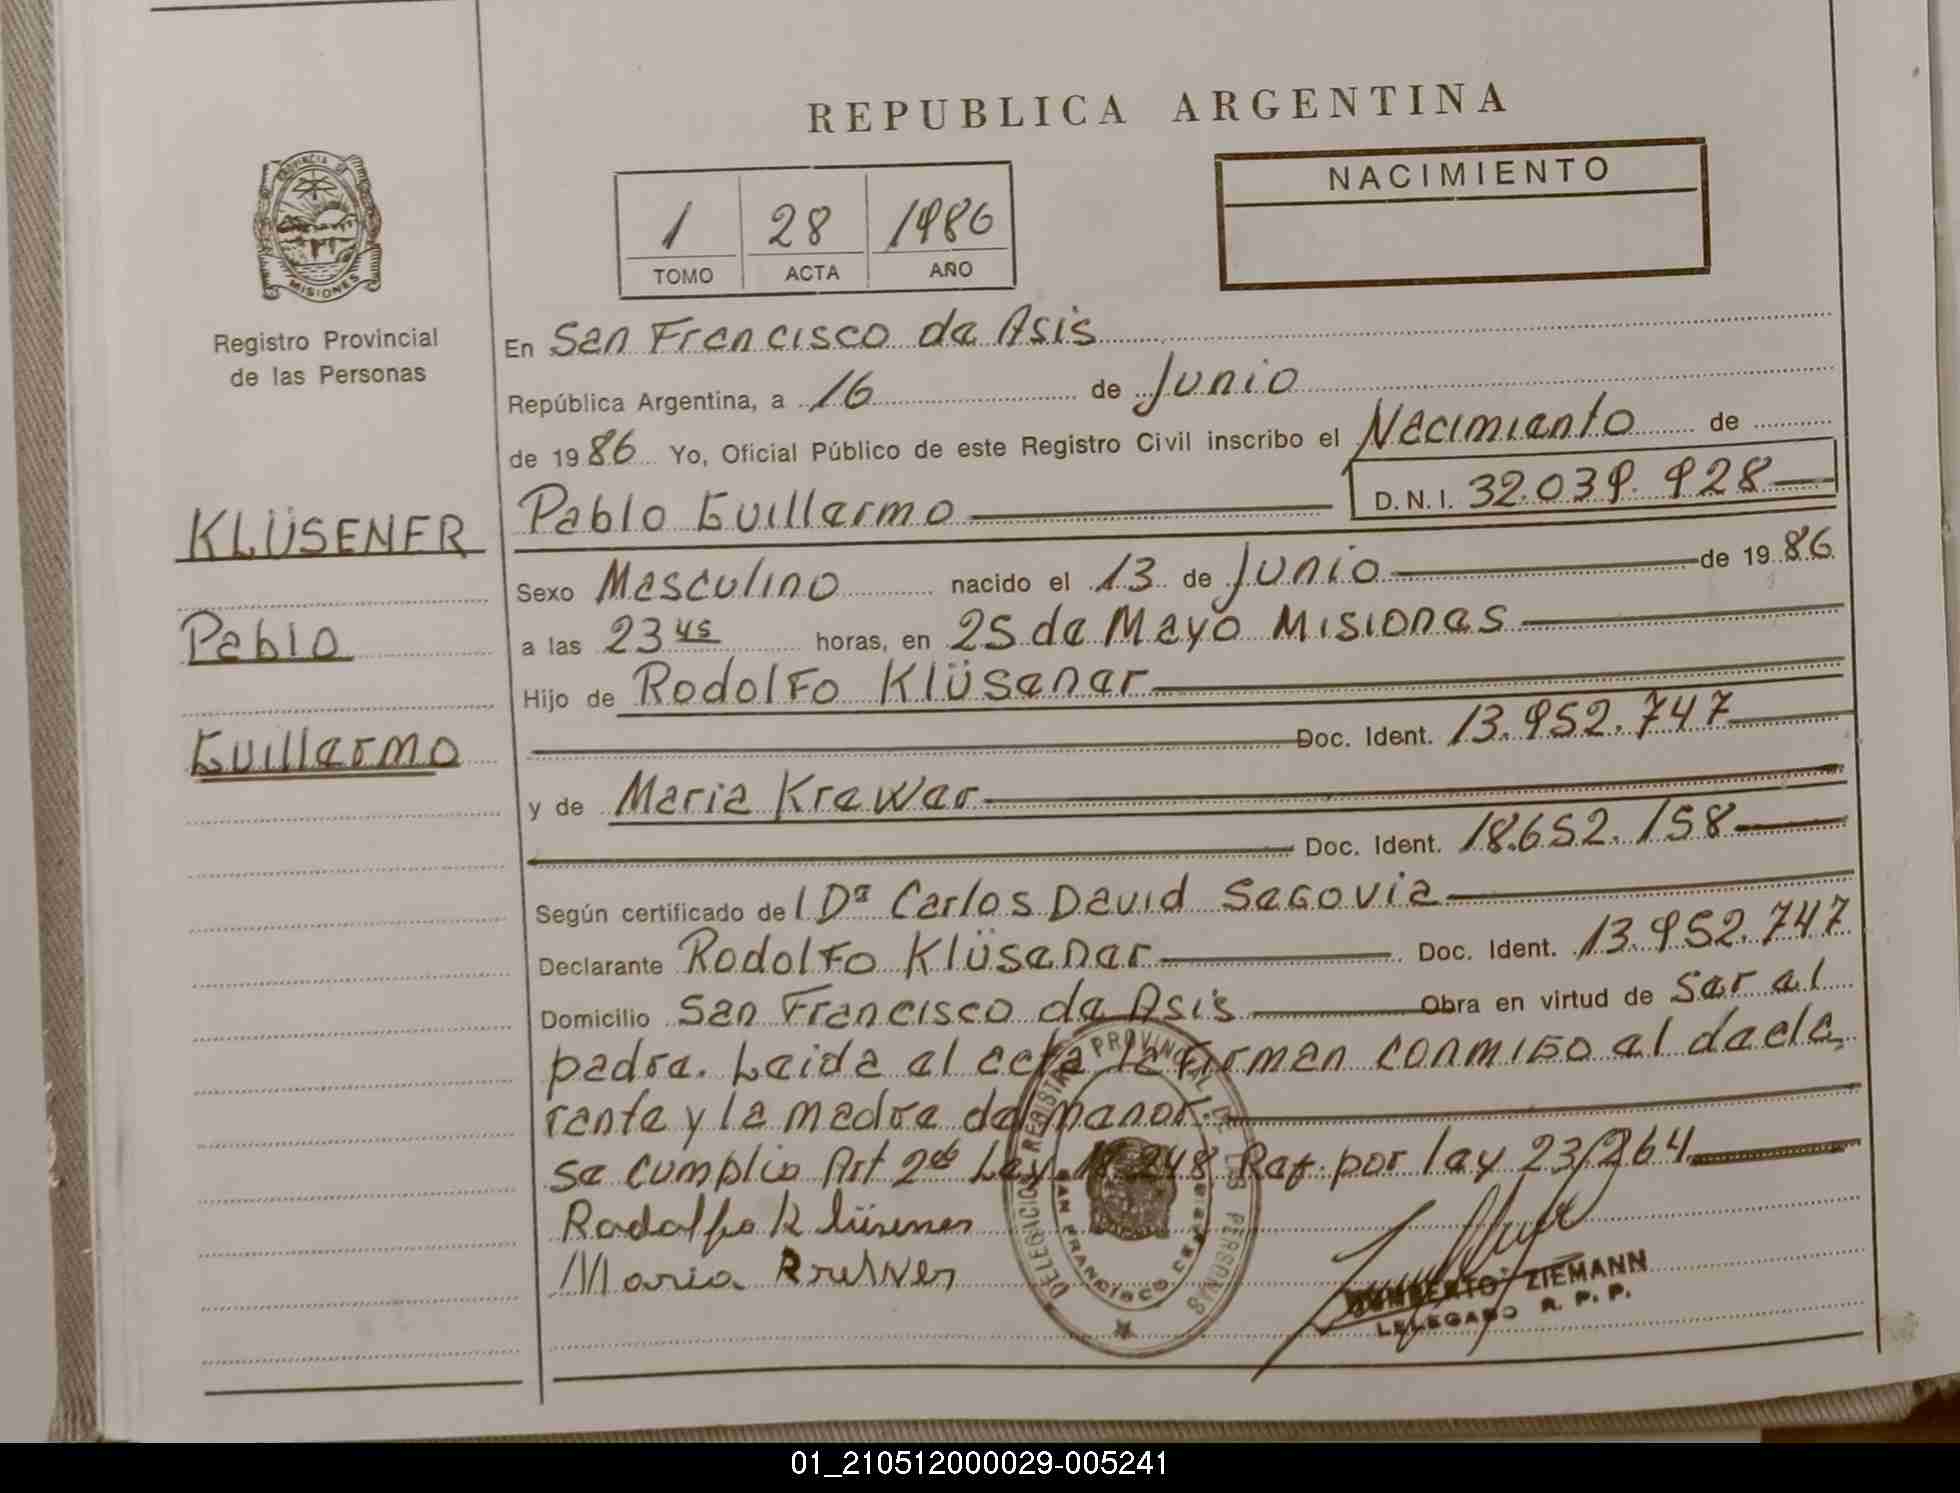 REPUBLICA ARGENTINA
PROVINCIA DE
MISIONES
Registro Provincial
de las Personas
1 28 1986
TOMO ACTA AÑO
NACIMIENTO
En San Francisco de Asis
República Argentina, a 16 de Junio
de 1986 Yo, Oficial Público de este Registro Civil inscribo el Nacimiento de
D.N.I. 32.039.928
KLÜSENER
Pablo
Guillermo
Pablo Guillermo
Sexo Masculino nacido el 13 de Junio de 1986
a las 23 45 horas, en 25 de Mayo Misiones
Hijo de Rodolfo Klüsener
Doc. Ident. 13.952.747
y de Maria Krewer
Doc. Ident. 18.652.158
Según certificado del Dr Carlos David Segovia
Declarante Rodolfo Klüsener Doc. Ident. 13.952.747
Domicilio San Francisco de Asis Obra en virtud de ser el
padre. Leida el acta la firman conmigo el decla
rante y la madre del menor.
se cumplio Art 2do Ley 18.248 Ref. por ley 23/264
Rodolfo Klüsener
Maria Kruwer
DELEGACION REGISTRO PROVINCIAL DE LAS PERSONAS
SAN FRANCISCO
HUMBERTO ZIEMANN
DELEGADO R. P. P.
01_210512000029-005241